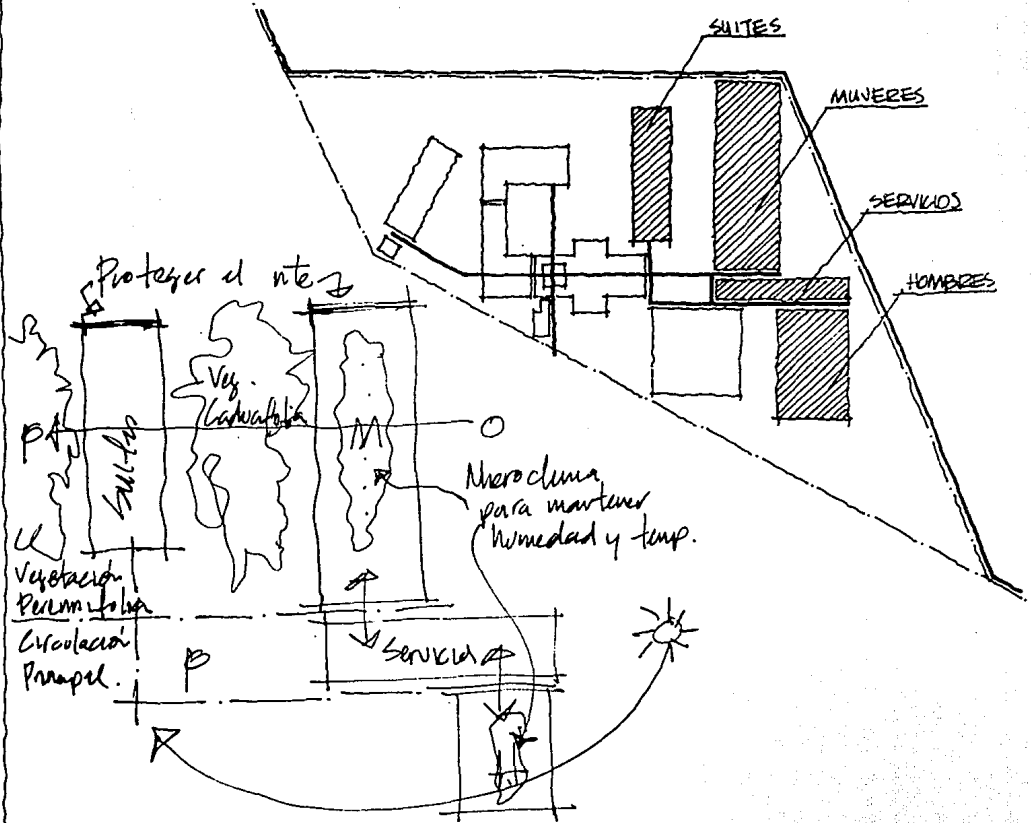 SUITES
MUJERES
SERVICIOS
HOMBRES
Proteger al nte
Veg.
Caducifolia
Suites
M
P
O
Microclima
para mantener
humedad y temp.
Vegetación
Perennifolia
Circulación
Principal.
P
Servicio
H